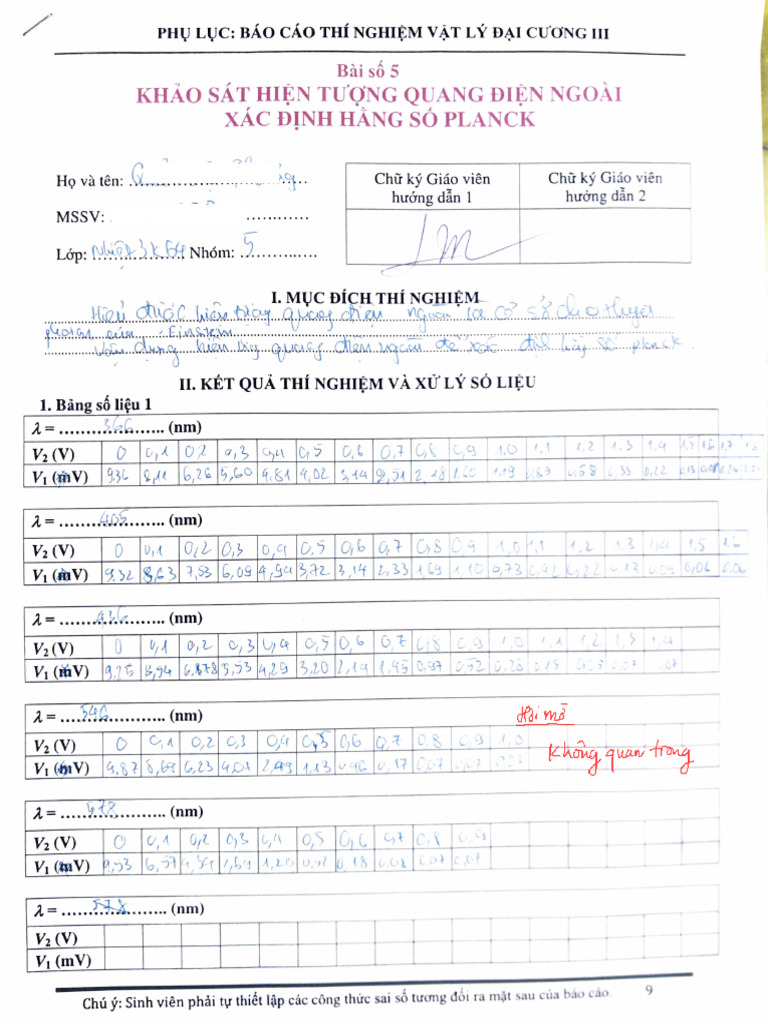 PHỤ LỤC: BÁO CÁO THÍ NGHIỆM VẬT LÝ ĐẠI CƯƠNG III
Bài số 5
KHẢO SÁT HIỆN TƯỢNG QUANG ĐIỆN NGOÀI
XÁC ĐỊNH HẰNG SỐ PLANCK
Họ và tên:
MSSV:
Lớp: Nhóm: 5
Chữ ký Giáo viên hướng dẫn 1
Chữ ký Giáo viên hướng dẫn 2
I. MỤC ĐÍCH THÍ NGHIỆM
Hiểu được hiện tượng quang điện ngoài cơ sở cho thuyết
photon của Einstein
Vận dụng hiện tượng quang điện ngoài để xác định hằng số planck.
II. KẾT QUẢ THÍ NGHIỆM VÀ XỬ LÝ SỐ LIỆU
1. Bảng số liệu 1
λ = 366 (nm)
V2 (V) 0 0,1 0,2 0,3 0,4 0,5 0,6 0,7 0,8 0,9 1,0 1,1 1,2 1,3 1,4 1,5 1,6 1,7 1,8
V1 (mV) 9,36 8,11 6,26 5,60 4,81 4,02 3,14 2,51 2,18 1,60 1,19 0,87 0,58 0,33 0,22
λ = 405 (nm)
V2 (V) 0 0,1 0,2 0,3 0,4 0,5 0,6 0,7 0,8 0,9 1,0 1,1 1,2 1,3 1,4 1,5 1,6
V1 (mV) 9,32 8,63 7,53 6,09 4,94 3,72 3,14 2,33 1,69 1,10 0,73 0,42 0,22 0,12 0,09 0,06 0,06
λ = 436 (nm)
V2 (V) 0 0,1 0,2 0,3 0,4 0,5 0,6 0,7 0,8 0,9 1,0 1,1 1,2 1,3 1,4
V1 (mV) 9,25 8,54 6,878 5,53 4,29 3,20 2,19 1,45 0,97 0,52 0,28 0,15 0,07 0,07
λ = 546 (nm)
Hơi mờ
V2 (V) 0 0,1 0,2 0,3 0,4 0,5 0,6 0,7 0,8 0,9 1,0
Không quan trong
V1 (mV) 9,87 8,69 6,23 4,01 2,49 1,13 0,46 0,17 0,07 0,07 0,07
λ = 578 (nm)
V2 (V) 0 0,1 0,2 0,3 0,4 0,5 0,6 0,7 0,8 0,9
V1 (mV) 9,53 6,57 2,59 1,20 0,52 0,18 0,08 0,07 0,07
λ = 578 (nm)
V2 (V)
V1 (mV)
Chú ý: Sinh viên phải tự thiết lập các công thức sai số tương đối ra mặt sau của báo cáo. 9